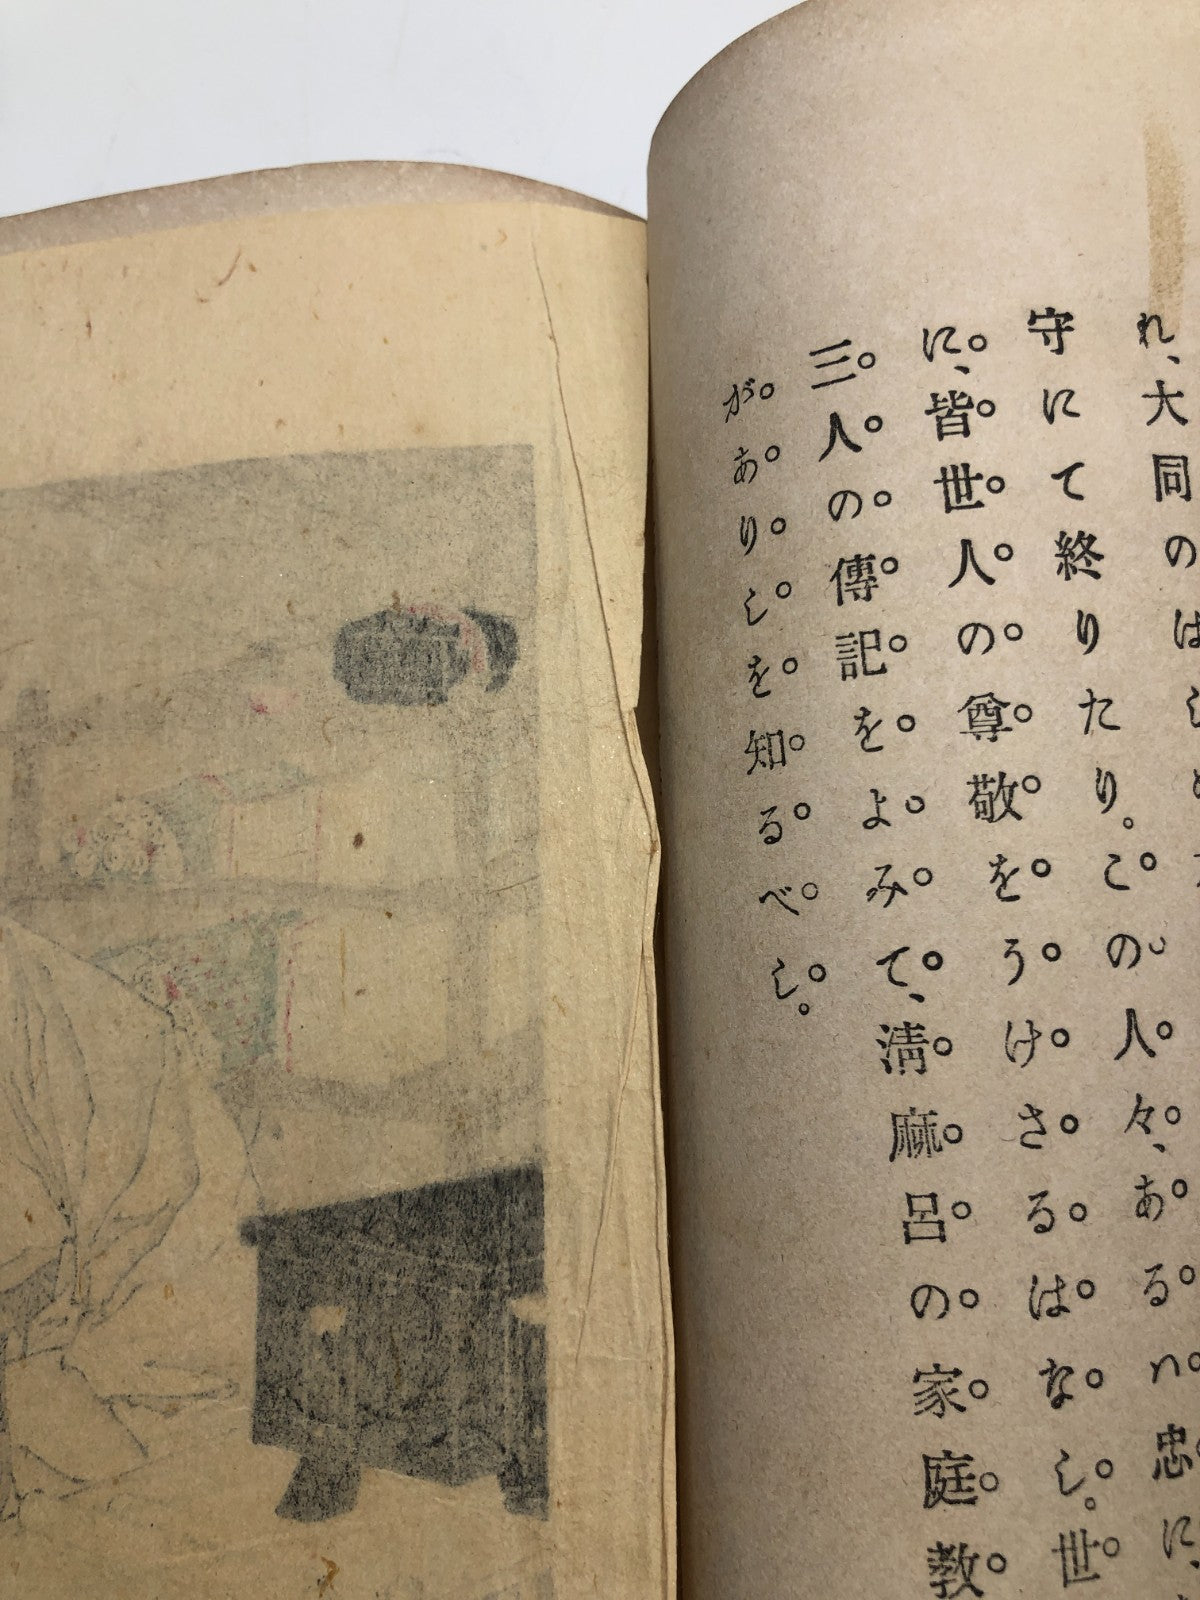 れ、大同のはじ
守にて終りたり。この人々、あるハ忠に、
に、皆世人の尊敬をうけざるはなし。世
三人の傳記をよみて、淸麻呂の家庭教
がありしを知るべし。